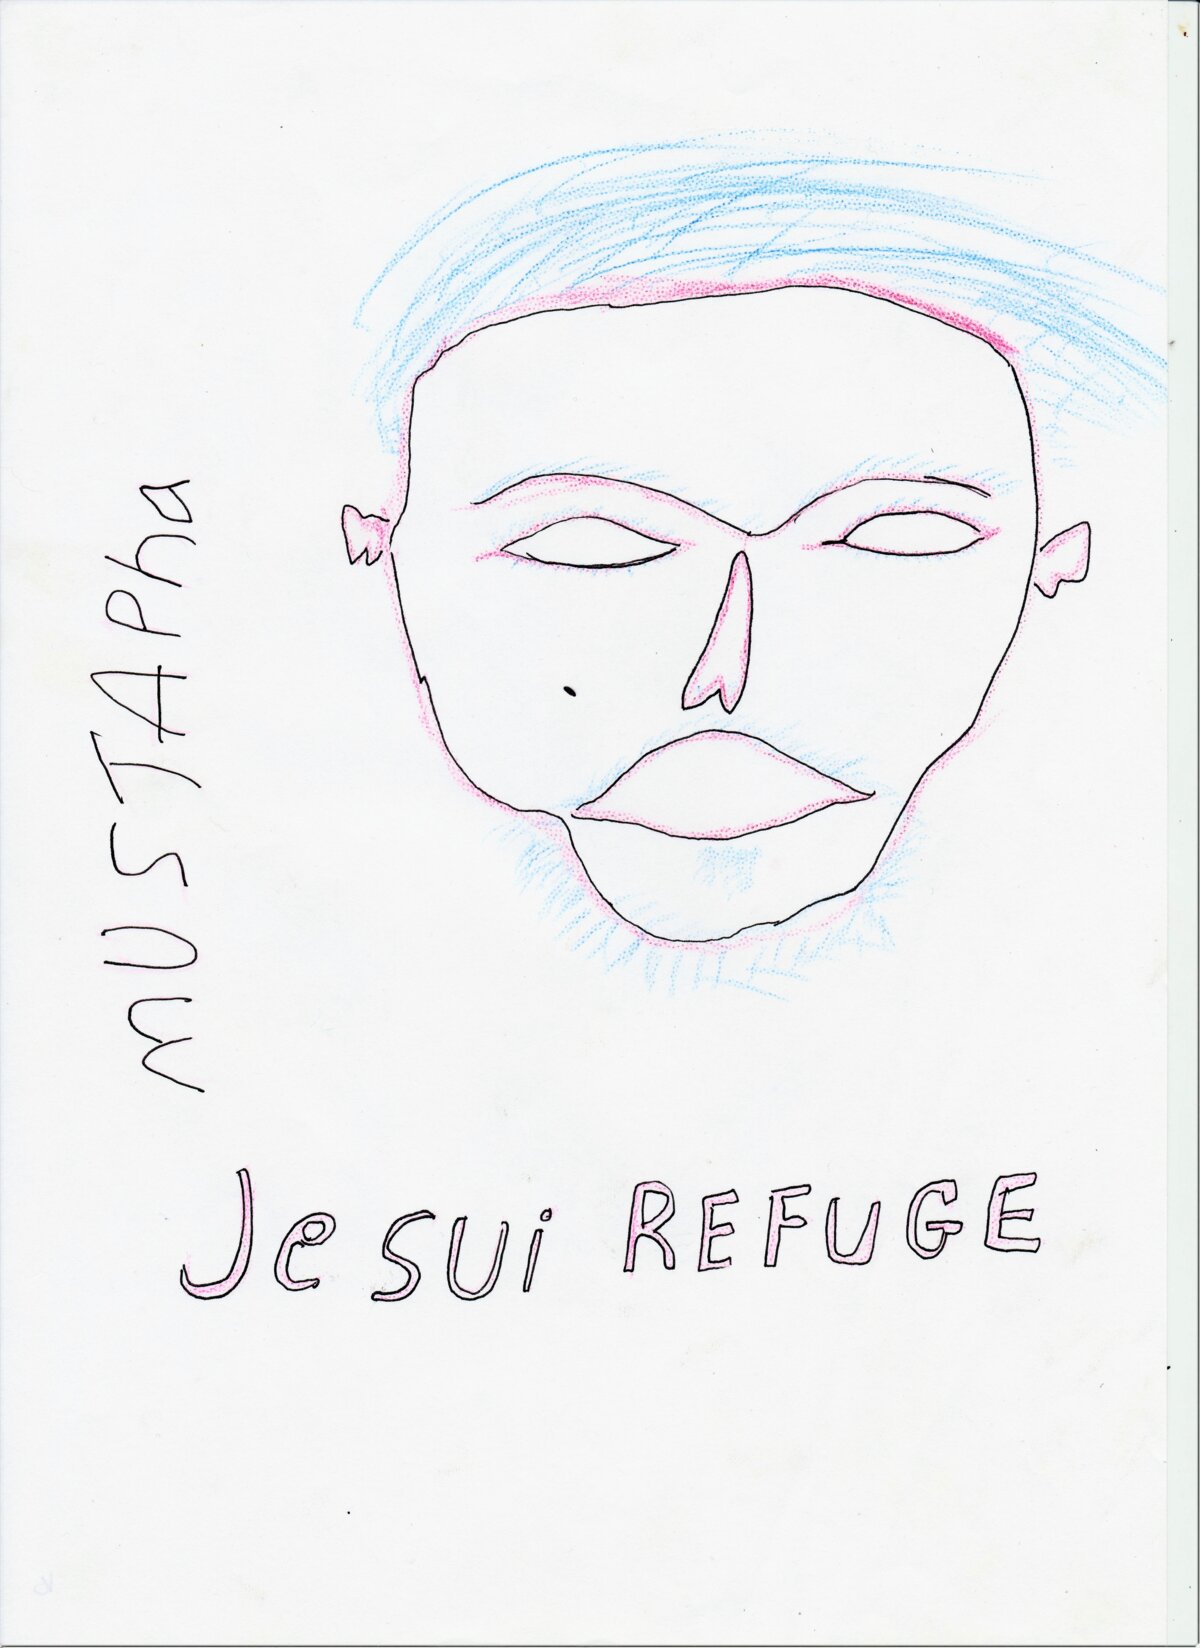 MUSTAPha
Je SUi REFUGE